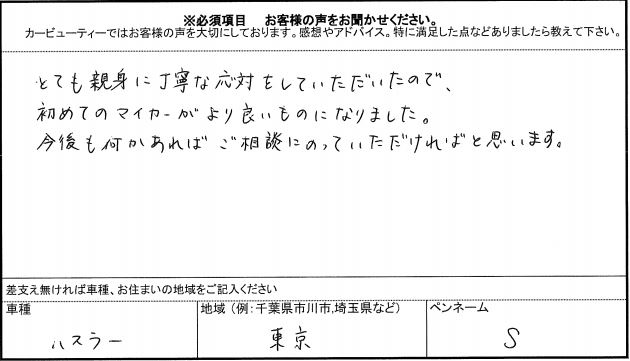 ※必須項目　お客様の声をお聞かせください。
カービューティーではお客様の声を大切にしております。感想やアドバイス。特に満足した点などありましたら教えて下さい。
とても親身に丁寧な応対をしていただいたので、
初めてのマイカーがより良いものになりました。
今後も何かあれば ご相談にのっていただければと思います。
差支え無ければ車種、お住まいの地域をご記入ください
車種　地域（例：千葉県市川市,埼玉県など）　ペンネーム
ハスラー　東京　S